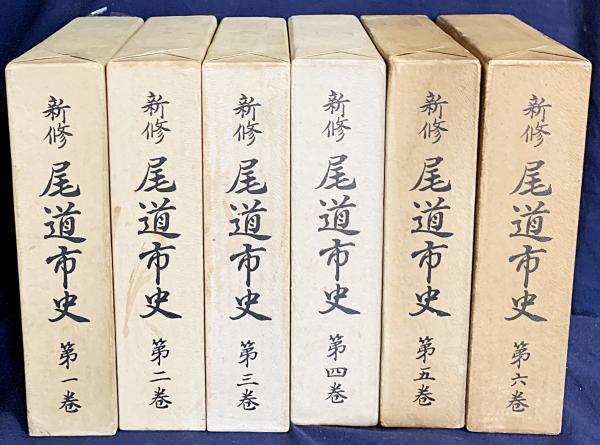 新修
尾道市史
第一巻
新修
尾道市史
第二巻
新修
尾道市史
第三巻
新修
尾道市史
第四巻
新修
尾道市史
第五巻
新修
尾道市史
第六巻